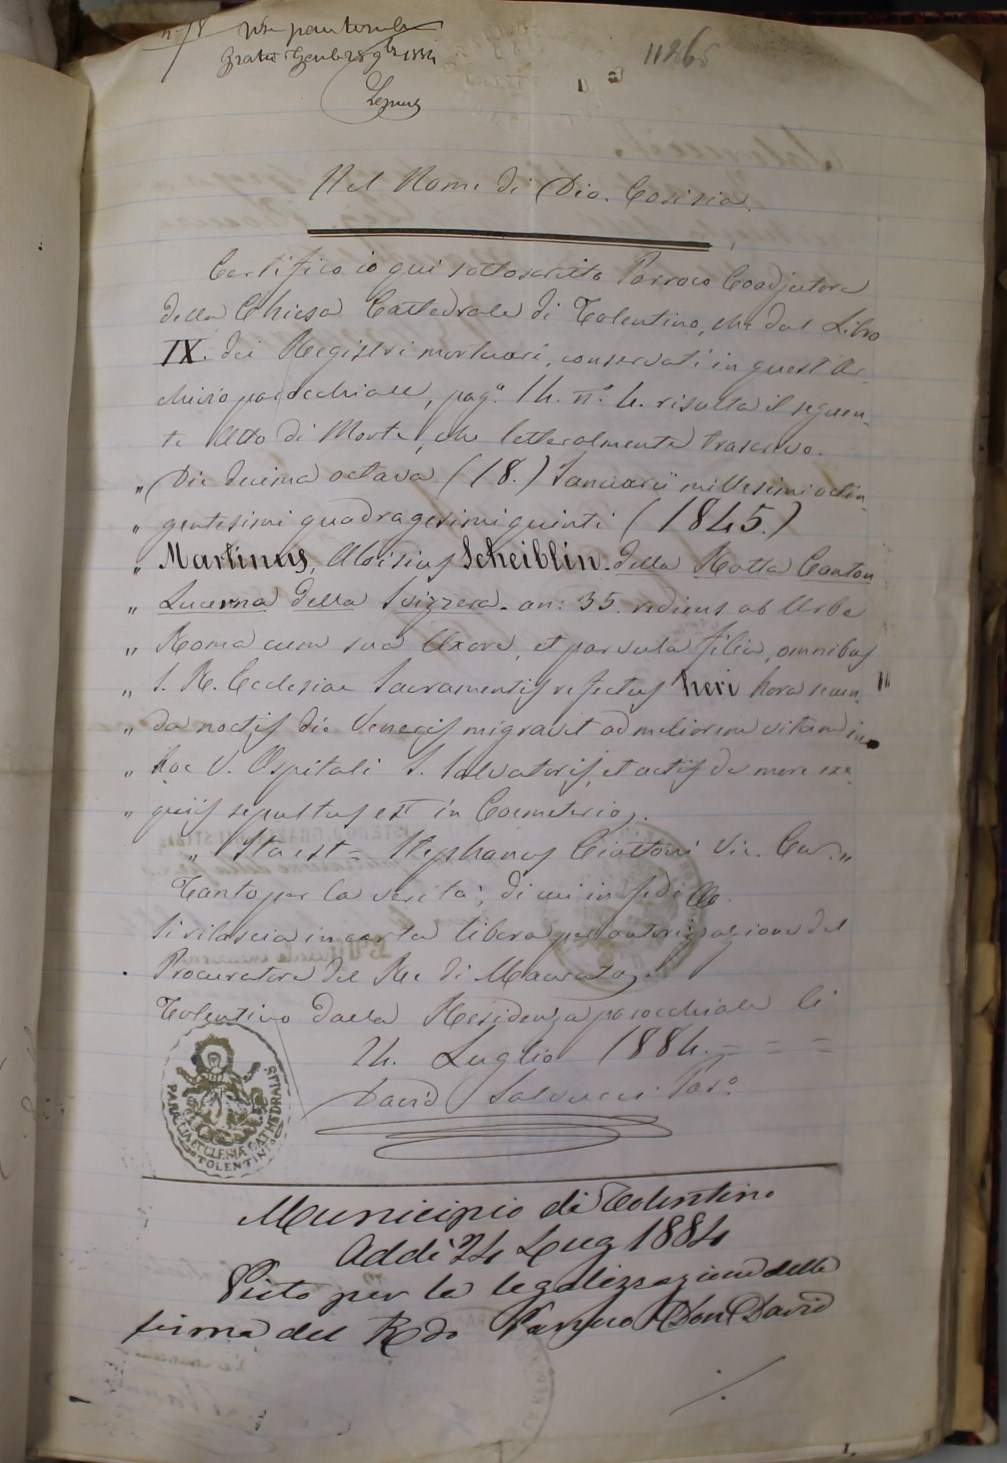 11265
Nel Nome di Dio. Così sia.
Certifico io qui sottoscritto Parroco Coadjutore
della Chiesa Cattedrale di Tolentino, che dal Libro
IX. dei Registri mortuari, conservati in quest'Ar-
chivio parocchiale, pag.ª 14. n.º 4. risulta il seguen-
te Atto di Morte, che letteralmente trascrivo.
„ Die decima octava (18.) Januarii millesimi octin-
„ gentesimi quadragesimi quinti (1845.)
„ Martinus, Aloisius Scheiblin. della Rotta Canton
„ Lucerna della Svizzera. an: 35. rediens ab Urbe
„ Roma cum sua Uxore, et parvula filia, omnibus
„ S. R. Ecclesiae Sacramentis refectus heri hora secun- "
„ da noctis die Veneris migravit ad meliorem vitam in
„ hoc V. Ospitali S. Salvatoris, et actis de more exe-
„ quiis sepultus est in Coemeterio.
„ Ita est = Stephanus Ciattoni Vic. Cur. „
Tanto per la verità; di cui in fede
Si rilascia in carta libera per autorizzazione del
Procuratore del Re di Macerata.
Tolentino dalla Residenza parocchiale li
24. Luglio 1884. = = =
David Salvucci Par.º
PARA ECCLESIA CATHEDRALIS
TOLENTINI
Municipio di Tolentino
Addì 24 Lug 1884
Visto per la legalizzazione della
firma del Rdo Parroco Don David